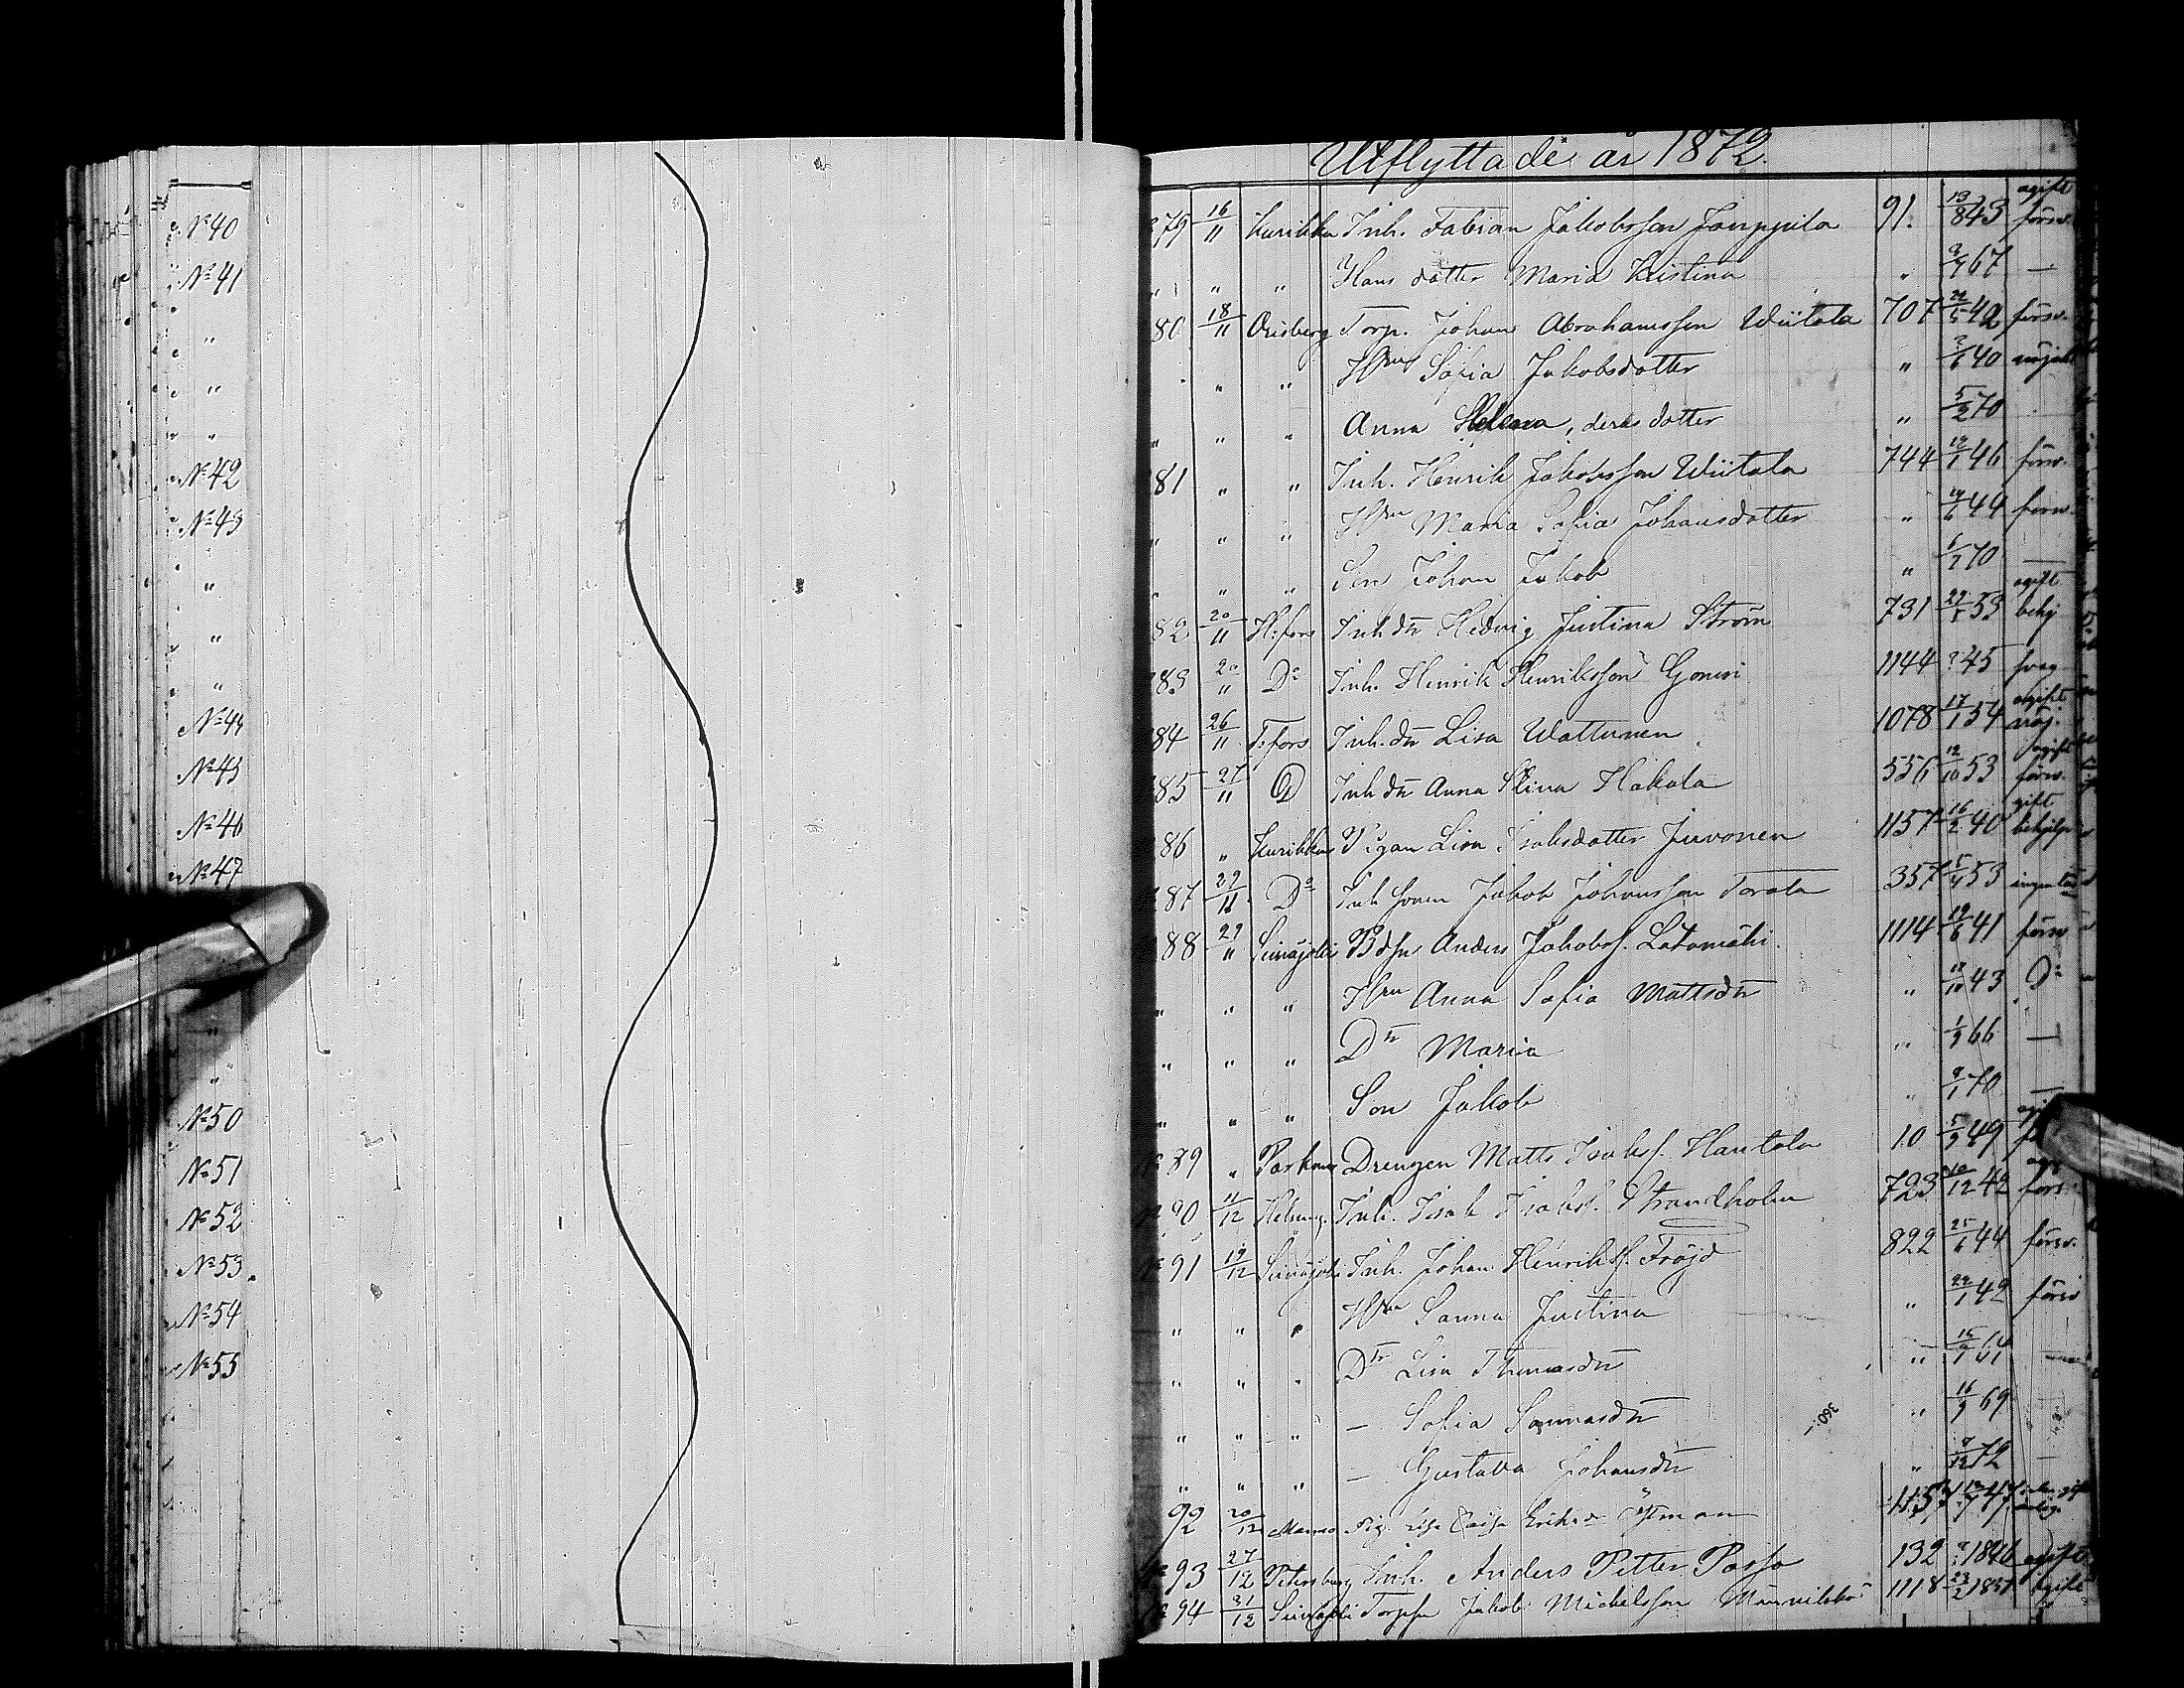 № 40
№ 41
"
"
"
№ 42
№ 43
"
"
"
№ 44
№ 45
№ 46
№ 47
"
"
№ 50
№ 51
№ 52
№ 53
№ 54
№ 55
Utflyttade år 1872.
79 16/11 Kurikka Inh. Fabian Jakobsson Jouppila 91. 843 ogift försv.
" " " Hans dotter Maria Kristina " 67 —
80 18/11 Orisberg Torp. Johan Abrahamsson Wiitala 707 42 försv.
" " Hru Sofia Jakobsdotter " 40
" " " Anna Helena, deras dotter " 5/2 70
81 " " Inh. Henrik Jakobsson Wiitala 744 46 försv.
" " " Hru Maria Sofia Johansdotter " 44 försv.
" " Son Johan Jakob " 70 —
82 20/11 H:fors Inh dr Hedvig Justina Ström 731 53 ogift behj
83 20/" Do Inh. Henrik Henriksson Gonori 1144 ? 45 svag
84 26/11 T:fors Inh. dr Lisa Wattunen 1078 17/1 54 ogift nöj.
85 27/11 D Inh dr Anna Stina Hakala 556 12/10 53 ogift försv.
86 " Kurikka Pigan Lisa Isaksdotter Juvonen 1157 16/2 40 gift
87 29/11 Do Inh sonen Jakob Johansson Torala 357 53
88 29/11 Seinäjoki Bdsn Anders Jakobss. Latomäki 1114 19/6 41 försv
" " " Hru Anna Sofia Mattsdr " 18/10 43 Do
" " " Dr Maria " 1/9 66 —
" " " Son Jakob " 9/1 70 —
89 " Parkano Drengen Matts Isakss. Hautala 10 49
90 11/12 Helsing. Inh. Isak Isakss. Strandholm 723 10/12 42 förs.
91 19/12 Seinäjoki Inh. Johan Henrikss. Fröjd 822 25/6 44 försv.
" " " Hru Sanna Justina " 42 försv
" " " Dr Lisa Thomasdr " —
" " " — Sofia Sannasdr " 16/9 69 —
" " " — Gustava Johansdr " 72 —
92 20/12 Pig. Caisa Eriksdr Östman
93 27/12 Petersburg Inh. Anders Petter Passo 132 1846 ogift
94 31/12 Seinäjoki Torpsn Jakob Michelsson 1118 23/2 1851 ogift
360.